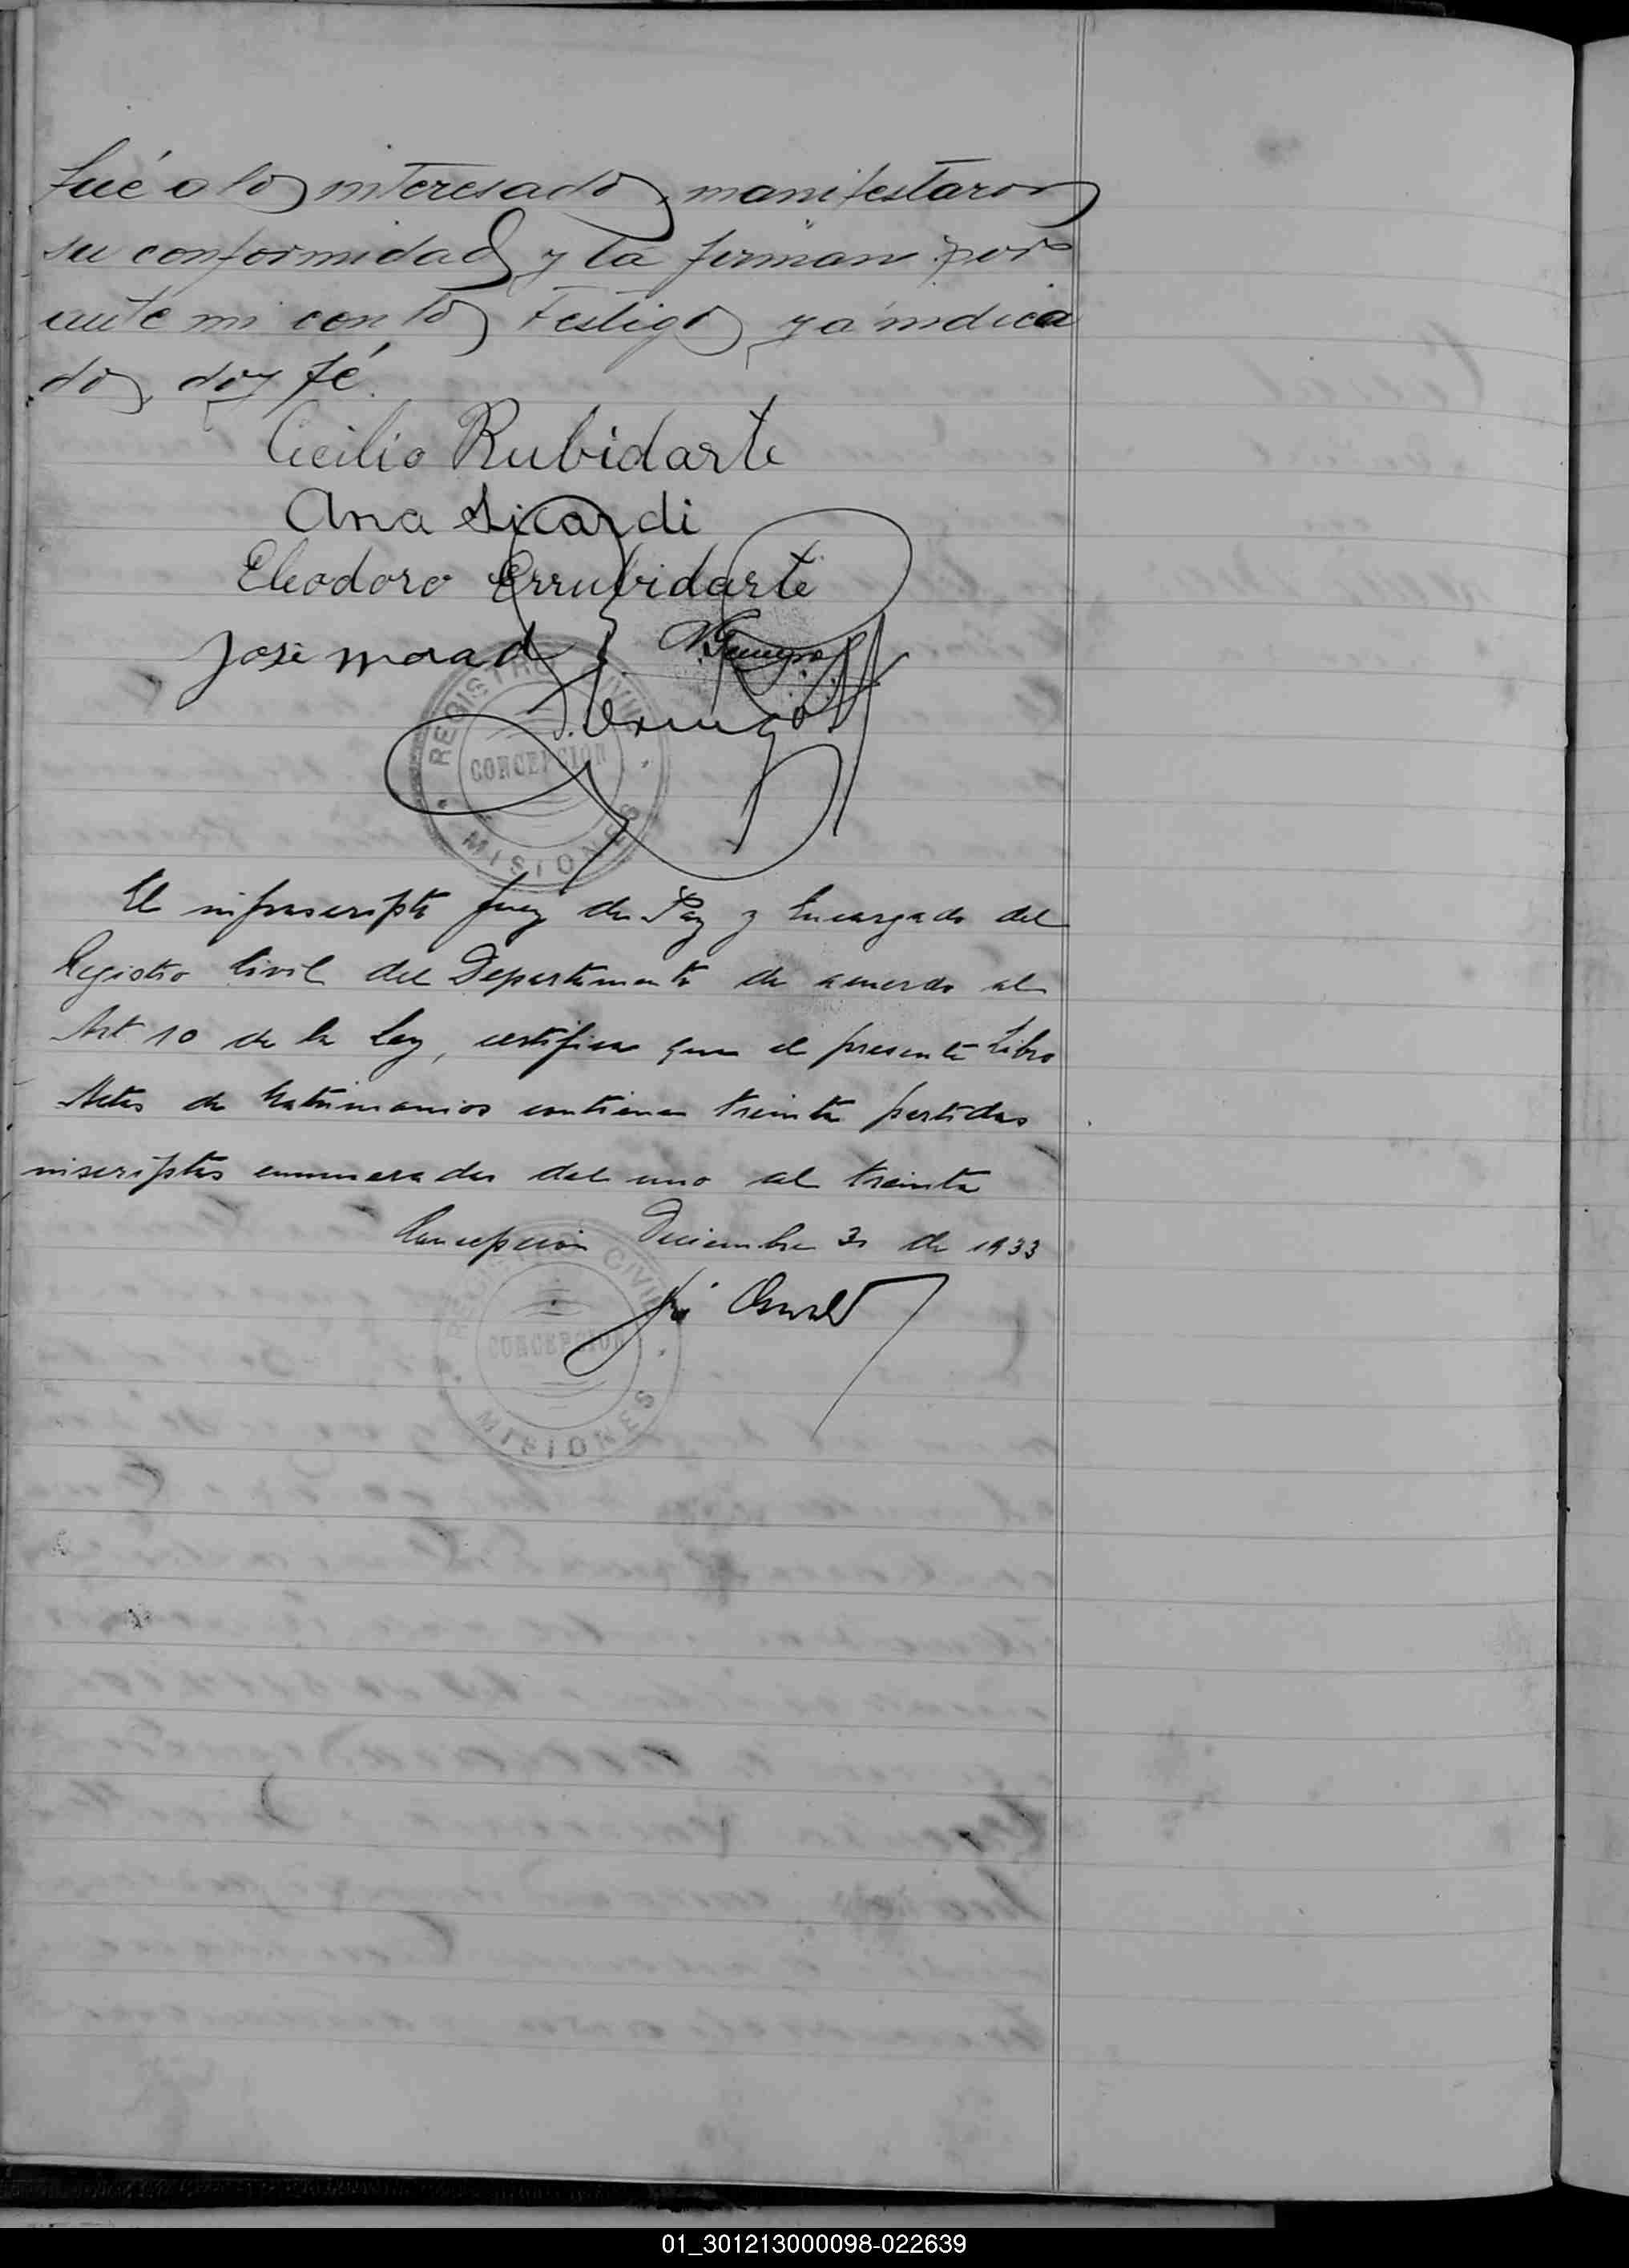 fué a los interesados, manifestaron
su conformidad y la firman por
ante mi con los testigos ya indica
dos, doy fé.
Cecilio Rubidarte
Ana Sicardi
Eleodoro Errubidarte
José Morad
REGISTRO CIVIL
CONCEPCION
MISIONES
El infrascripto Juez de Paz y Encargado del
Registro Civil del Departamento de acuerdo al
Art 10 de la Ley, certifica que el presente Libro
Actas de Matrimonios contiene treinta partidas
inscriptas enumeradas del uno al treinta
Concepción Diciembre 31 de 1933
REGISTRO CIVIL
CONCEPCION
MISIONES
01_301213000098-022639